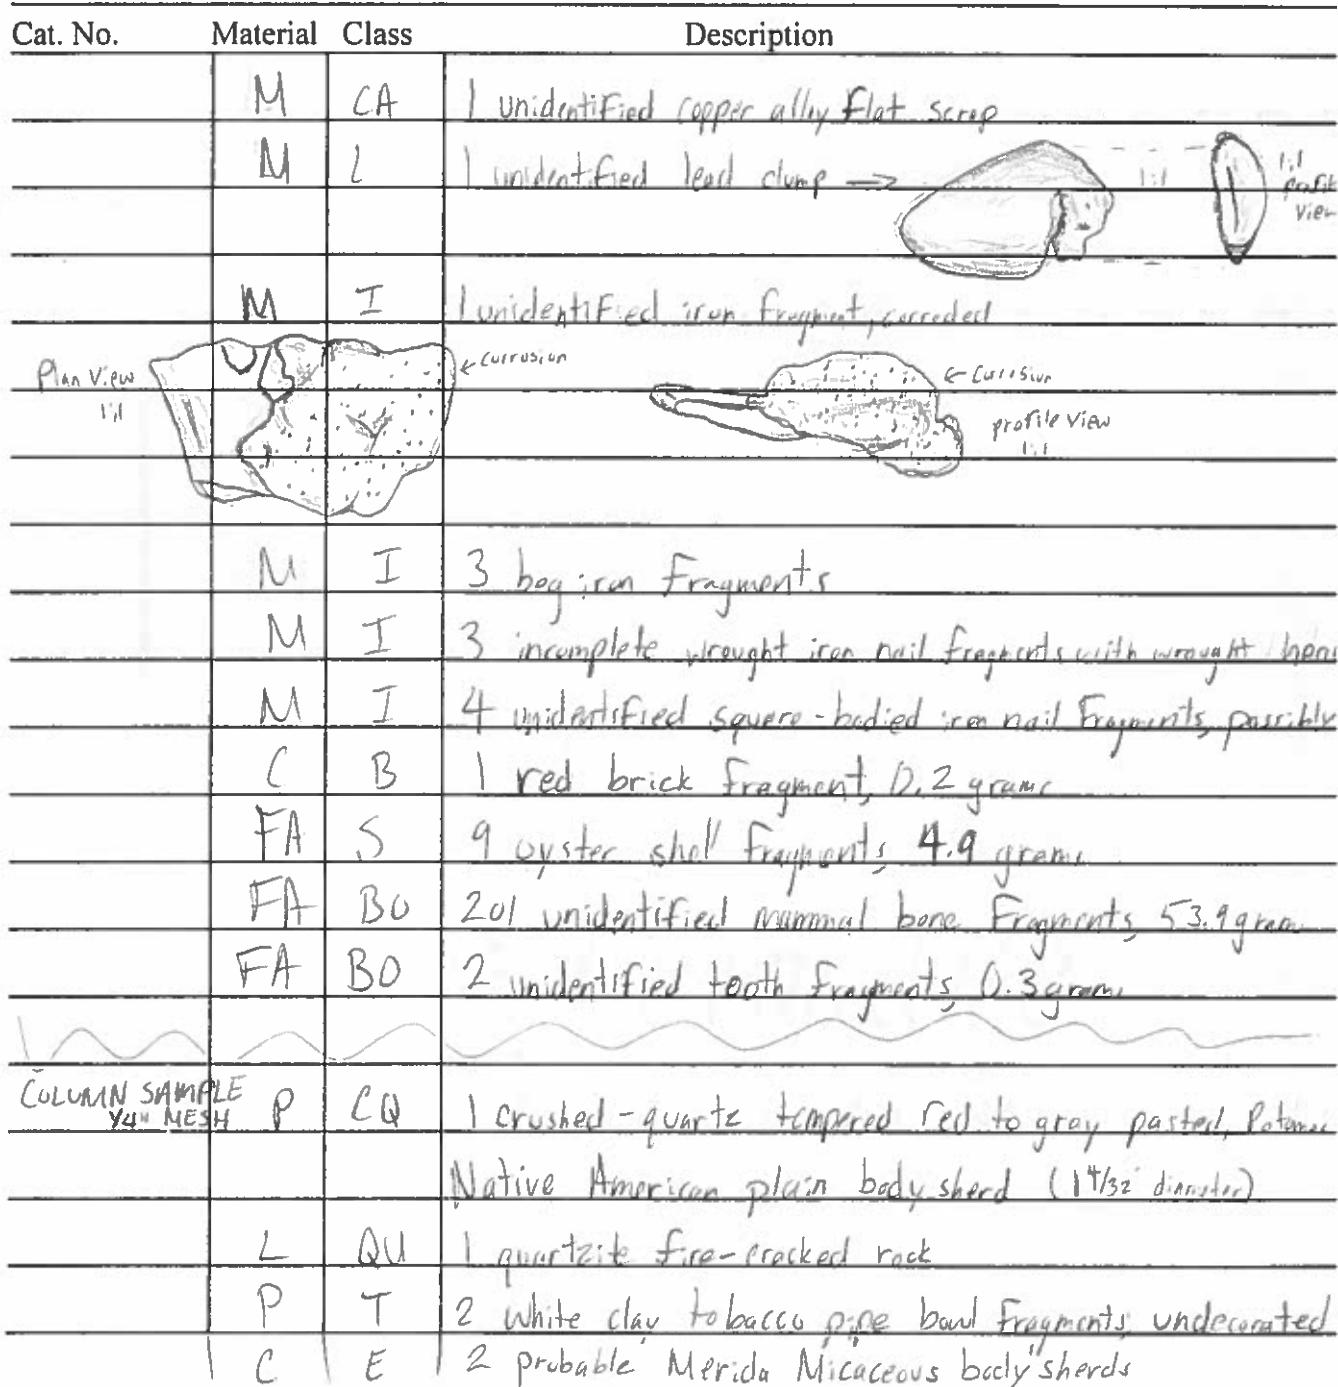 Cat. No. Material Class Description
M CA 1 unidentified copper alloy flat scrap
M L 1 unidentified lead clump → 1:1 1:1
profile
view
M I 1 unidentified iron fragment, corroded
Plan View ← currosion ← currosion
1:1 profile view
1:1
M I 3 bog iron fragments
M I 3 incomplete wrought iron nail fragments with wrought
M I 4 unidentified square-bodied iron nail fragments, possibly
C B 1 red brick fragment, 0.2 grams
FA S 9 oyster shell fragments, 4.9 grams
FA BO 201 unidentified mammal bone fragments, 53.9 gram
FA BO 2 unidentified tooth fragments, 0.3 grams
COLUMN SAMPLE P CQ 1 crushed-quartz tempered red to gray pasted, Potomac
1/4" MESH
Native American plain body sherd (1 4/32" diameter)
L QU 1 quartzite fire-cracked rock
P T 2 white clay tobacco pipe bowl fragments, undecorated
C E 2 probable Merida Micaceous body sherds